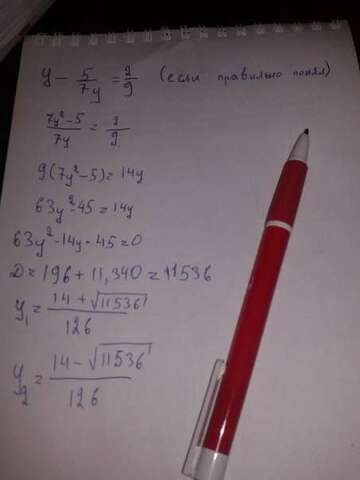 y - 5/7y = 2/9 (если правильно понял)
7y²-5/7y = 2/9
9(7y²-5)=14y
63y²-45=14y
63y²-14y-45=0
D=196+11,340=11536
y₁=14+√11536/126
y₂=14-√11536/126